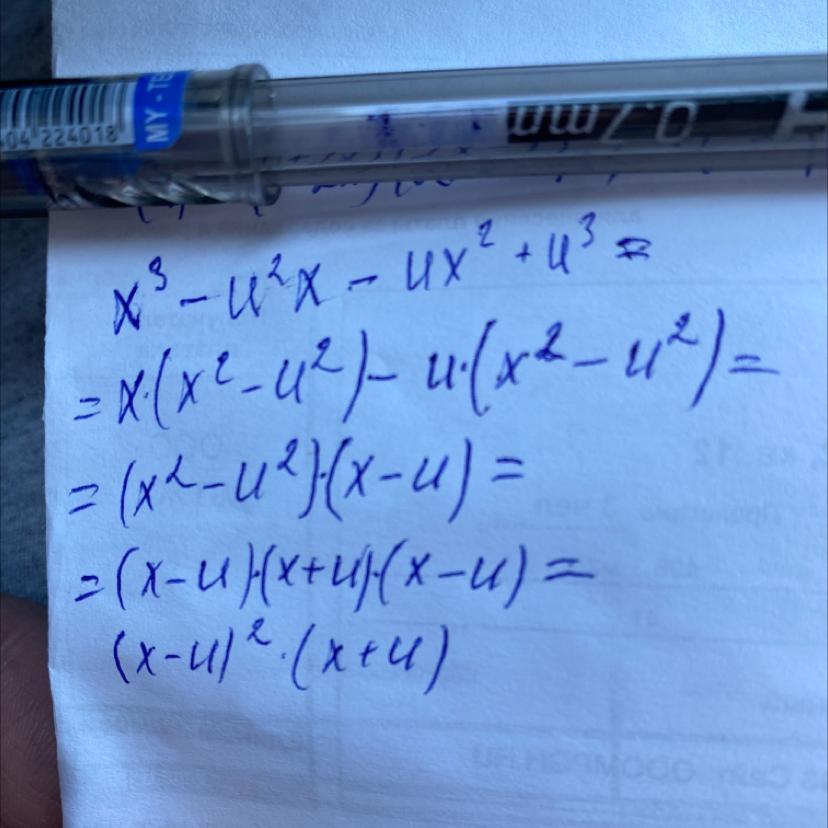 04 224018
MY - TE
0.7mm
x³ - u²x - ux² + u³ =
= x·(x² - u²) - u·(x² - u²) =
= (x² - u²)·(x - u) =
= (x - u)·(x + u)·(x - u) =
(x - u)²·(x + u)